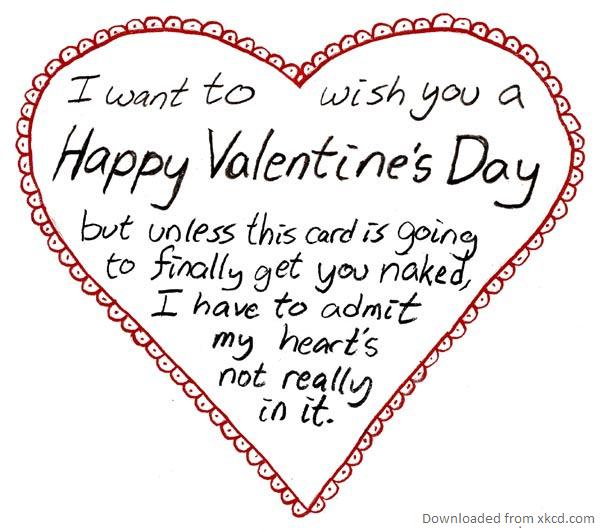 I want to wish you a
Happy Valentine's Day
but unless this card is going
to finally get you naked,
I have to admit
my heart's
not really
in it.
Downloaded from xkcd.com